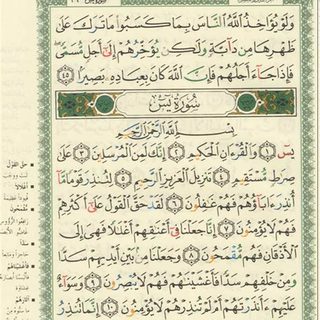 وَلَوْ يُؤَاخِذُ ٱللَّهُ ٱلنَّاسَ بِمَا كَسَبُوا۟ مَا تَرَكَ عَلَىٰ
ظَهْرِهَا مِن دَآبَّةٍ وَلَٰكِن يُؤَخِّرُهُمْ إِلَىٰٓ أَجَلٍ مُّسَمًّى
فَإِذَا جَآءَ أَجَلُهُمْ فَإِنَّ ٱللَّهَ كَانَ بِعِبَادِهِۦ بَصِيرًۢا ٤٥
سُورَةُ يسٓ
بِسْمِ ٱللَّهِ ٱلرَّحْمَٰنِ ٱلرَّحِيمِ
يسٓ ١ وَٱلْقُرْءَانِ ٱلْحَكِيمِ ٢ إِنَّكَ لَمِنَ ٱلْمُرْسَلِينَ ٣ عَلَىٰ
صِرَٰطٍ مُّسْتَقِيمٍ ٤ تَنزِيلَ ٱلْعَزِيزِ ٱلرَّحِيمِ ٥ لِتُنذِرَ قَوْمًا مَّآ
أُنذِرَ ءَابَآؤُهُمْ فَهُمْ غَٰفِلُونَ ٦ لَقَدْ حَقَّ ٱلْقَوْلُ عَلَىٰٓ أَكْثَرِهِمْ
فَهُمْ لَا يُؤْمِنُونَ ٧ إِنَّا جَعَلْنَا فِىٓ أَعْنَٰقِهِمْ أَغْلَٰلًا فَهِىَ إِلَى
ٱلْأَذْقَانِ فَهُم مُّقْمَحُونَ ٨ وَجَعَلْنَا مِنۢ بَيْنِ أَيْدِيهِمْ سَدًّا
وَمِنْ خَلْفِهِمْ سَدًّا فَأَغْشَيْنَٰهُمْ فَهُمْ لَا يُبْصِرُونَ ٩ وَسَوَآءٌ
عَلَيْهِمْ ءَأَنذَرْتَهُمْ أَمْ لَمْ تُنذِرْهُمْ لَا يُؤْمِنُونَ ١٠ إِنَّمَا تُنذِرُ
حَقَّ القَوْلُ
أغلالاً
مُقْمَحُونَ
سدًّا
فأغشيناهم